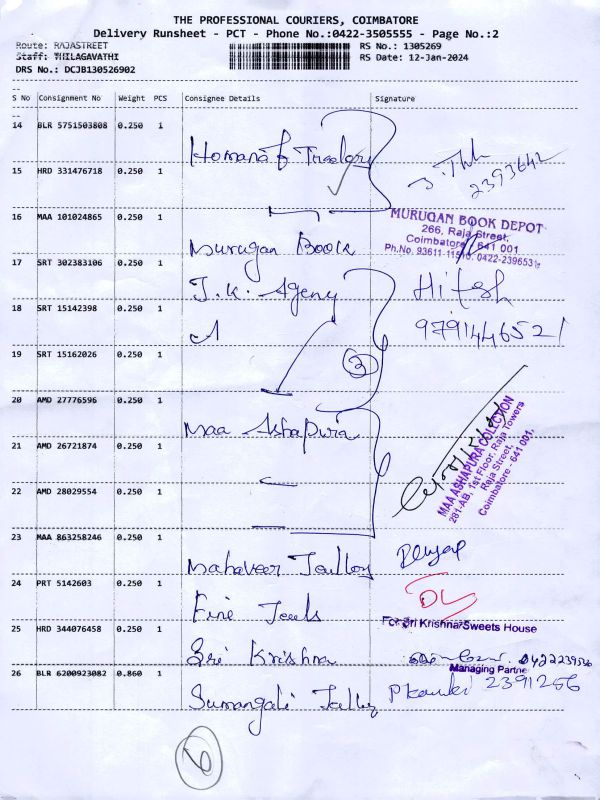 THE PROFESSIONAL COURIERS, COIMBATORE
Delivery Runsheet - PCT - Phone No.:0422-3505555 - Page No.:2
Route: RAJASTREET
RS No.: 1305269
Staff: THILAGAVATHI
RS Date: 12-Jan-2024
DRS No.: DCJB130526902
S No Consignment No Weight PCS Consignee Details Signature
14 BLR 5751503808 0.250 1
15 HRD 331476718 0.250 1
2393642
16 MAA 101024865 0.250 1 Murugan Book
MURUGAN BOOK DEPOT
266, Raja Street,
Coimbatore - 641 001
17 SRT 302383106 0.250 1 J.K. Ageny Hitesh
18 SRT 15142398 0.250 1 9791446521
19 SRT 15162026 0.250 1
3
20 AMD 27776596 0.250 1 Maa Ashapura
MAA ASHAPURA COLLECTION
281-AB, 1st Floor, Raja Towers
Raja Street,
Coimbatore - 641 001.
21 AMD 26721874 0.250 1
22 AMD 28029554 0.250 1
23 MAA 863258246 0.250 1 Mahaveer
24 PRT 5142603 0.250 1 Fine
For Sri Krishna Sweets House
25 HRD 344076458 0.250 1 Sri Krishna
Managing Partne
26 BLR 6200923082 0.860 1 Sumangali
2391256
6